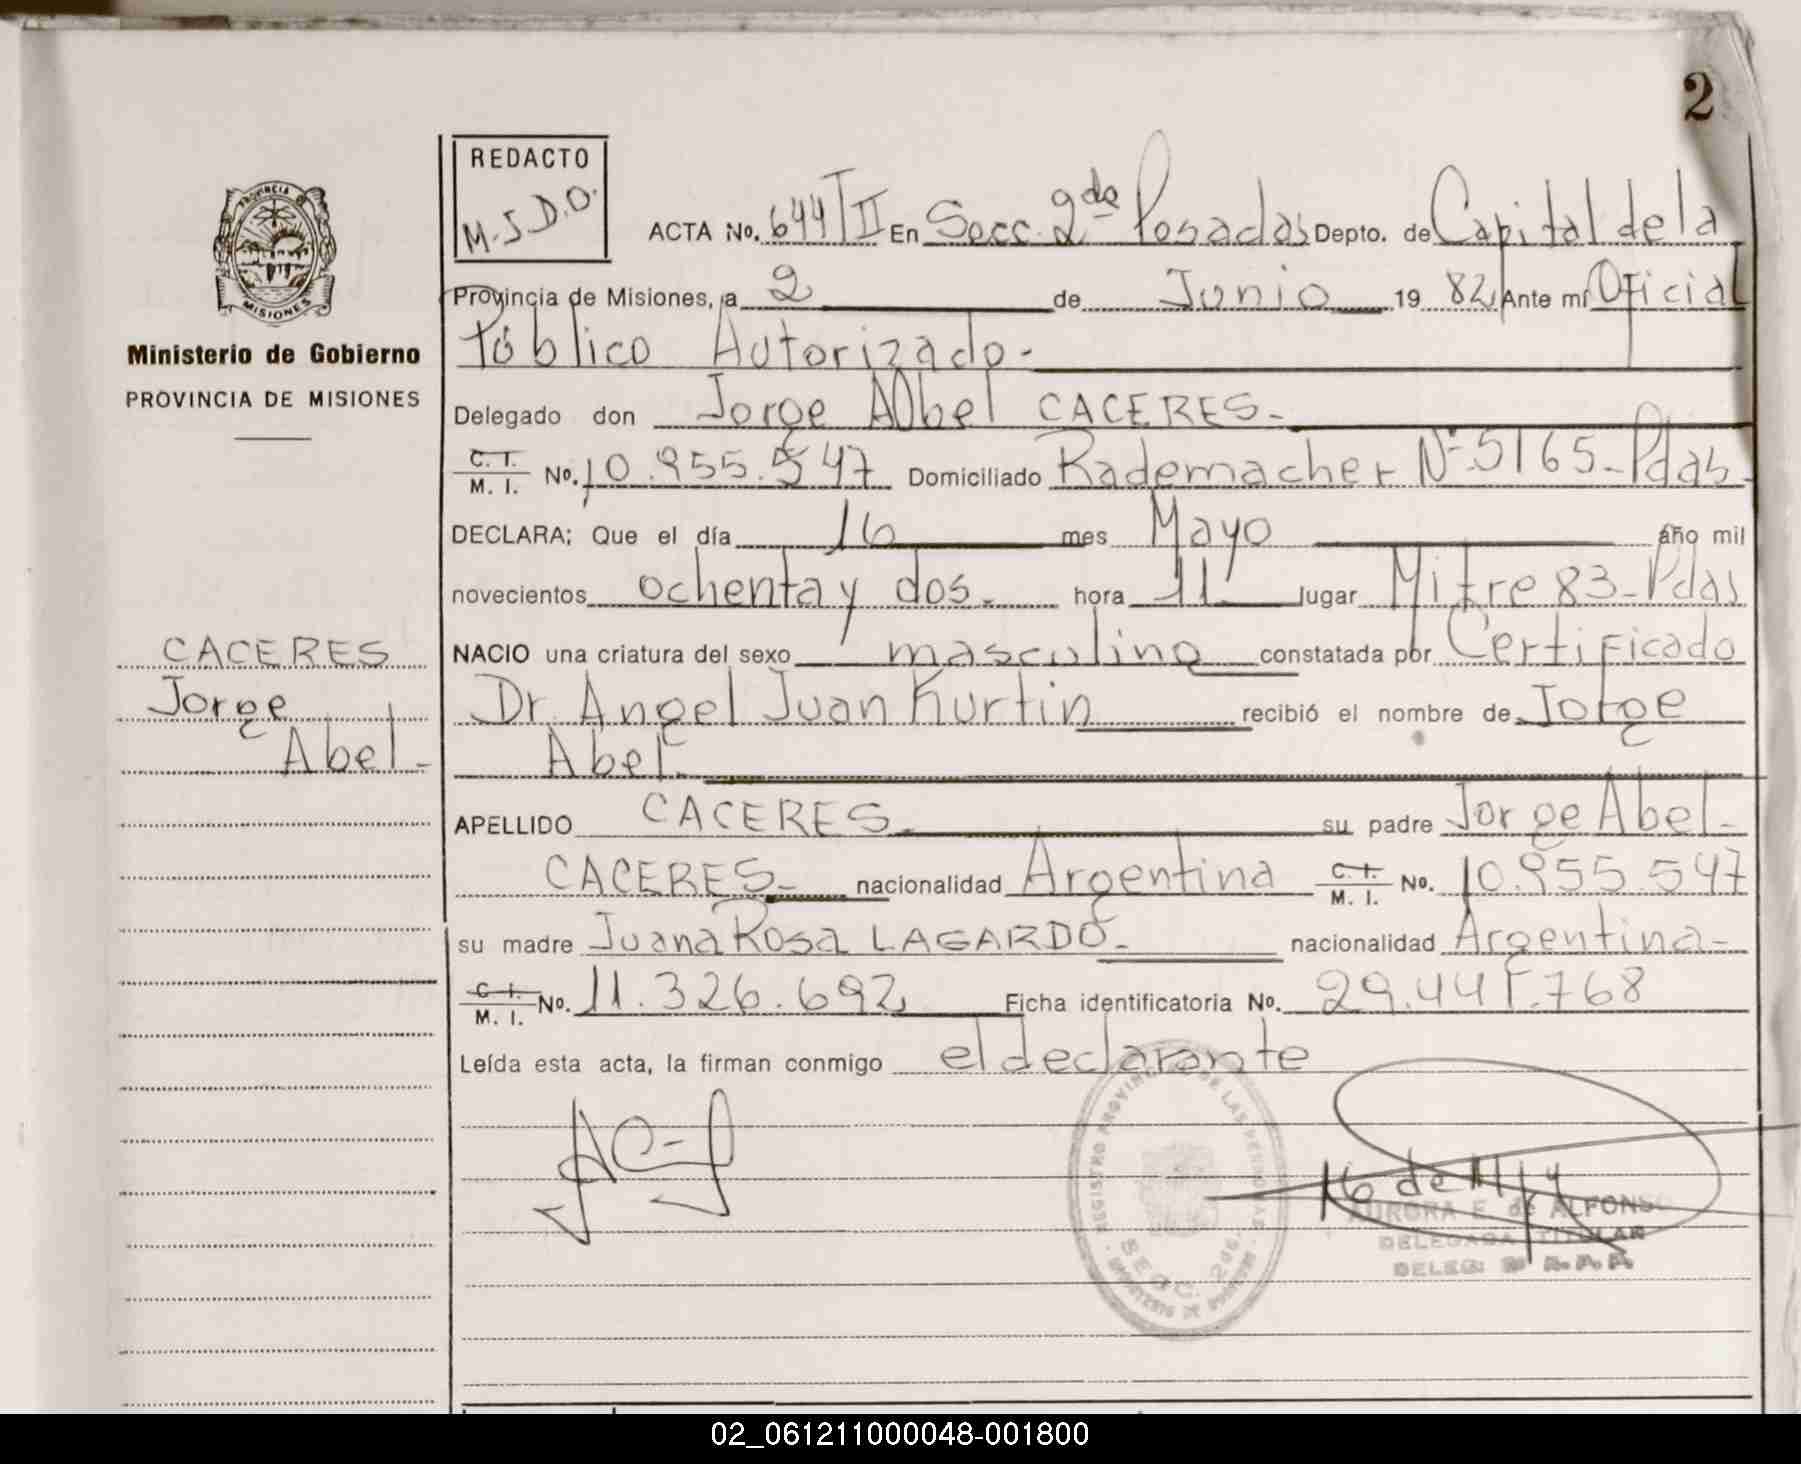 2
REDACTO
M.J.D.O.
PROVINCIA
MISIONES
Ministerio de Gobierno
PROVINCIA DE MISIONES
ACTA No. 644 T II En Secc. 2da Posadas Depto. de Capital de la
Provincia de Misiones, a 2 de Junio 19 82 Ante mí Oficial
Público Autorizado.-
Delegado don Jorge Abel CACERES.-
C. I.
M. I. No. 10.955.547 Domiciliado Rademacher Nº 5165-Pdas-
DECLARA; Que el día 16 mes Mayo año mil
novecientos ochenta y dos.- hora 11 lugar Mitre 83-Pdas
NACIO una criatura del sexo masculino constatada por Certificado
Dr. Angel Juan Kurtin recibió el nombre de Jorge
Abel.-
CACERES
Jorge
Abel-
APELLIDO CACERES.- su padre Jorge Abel-
CACERES- nacionalidad Argentina C. I.
M. I. No. 10.955.547
su madre Juana Rosa LAGARDO.- nacionalidad Argentina-
C. I.
M. I. No. 11.326.692 Ficha identificatoria No. 29.441.768
Leída esta acta, la firman conmigo el declarante
REGISTRO PROVINCIAL DE LAS PERSONAS
MINISTERIO DE GOBIERNO
AURORA E. de ALFONSO
DELEGADA TITULAR
02_061211000048-001800